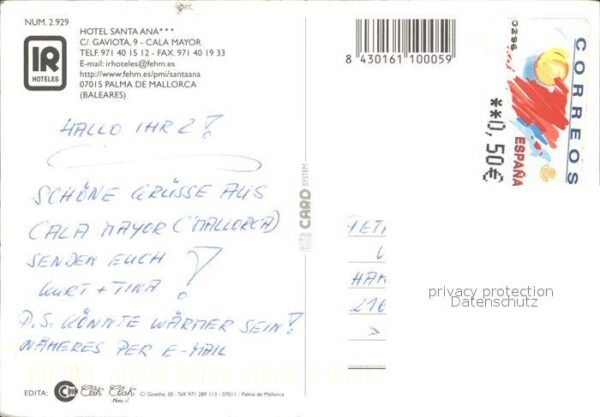 NUM. 2.929
IR
HOTELES
HOTEL SANTA ANA***
C/. GAVIOTA, 9 - CALA MAYOR
TELF. 971 40 15 12 - FAX. 971 40 19 33
E-mail: irhoteles@fehm.es
http://www.fehm.es/pmi/santaana
07015 PALMA DE MALLORCA
(BALEARES)
8 430161 100059
0296
**0,50€
ESPAÑA
CORREOS
HALLO IHR 2!
SCHÖNE GRÜSSE AUS
CALA MAYOR (MALLORCA)
SENDEN EUCH
KURT + TINA!
P.S. KÖNNTE WÄRMER SEIN!
NÄHERES PER E-MAIL
CARD SYSTEM
HAM
216
privacy protection
Datenschutz
EDITA:
Clik Clak
C/ Goethe, 30 - Telf. 971 289 113 - 07011 - Palma de Mallorca